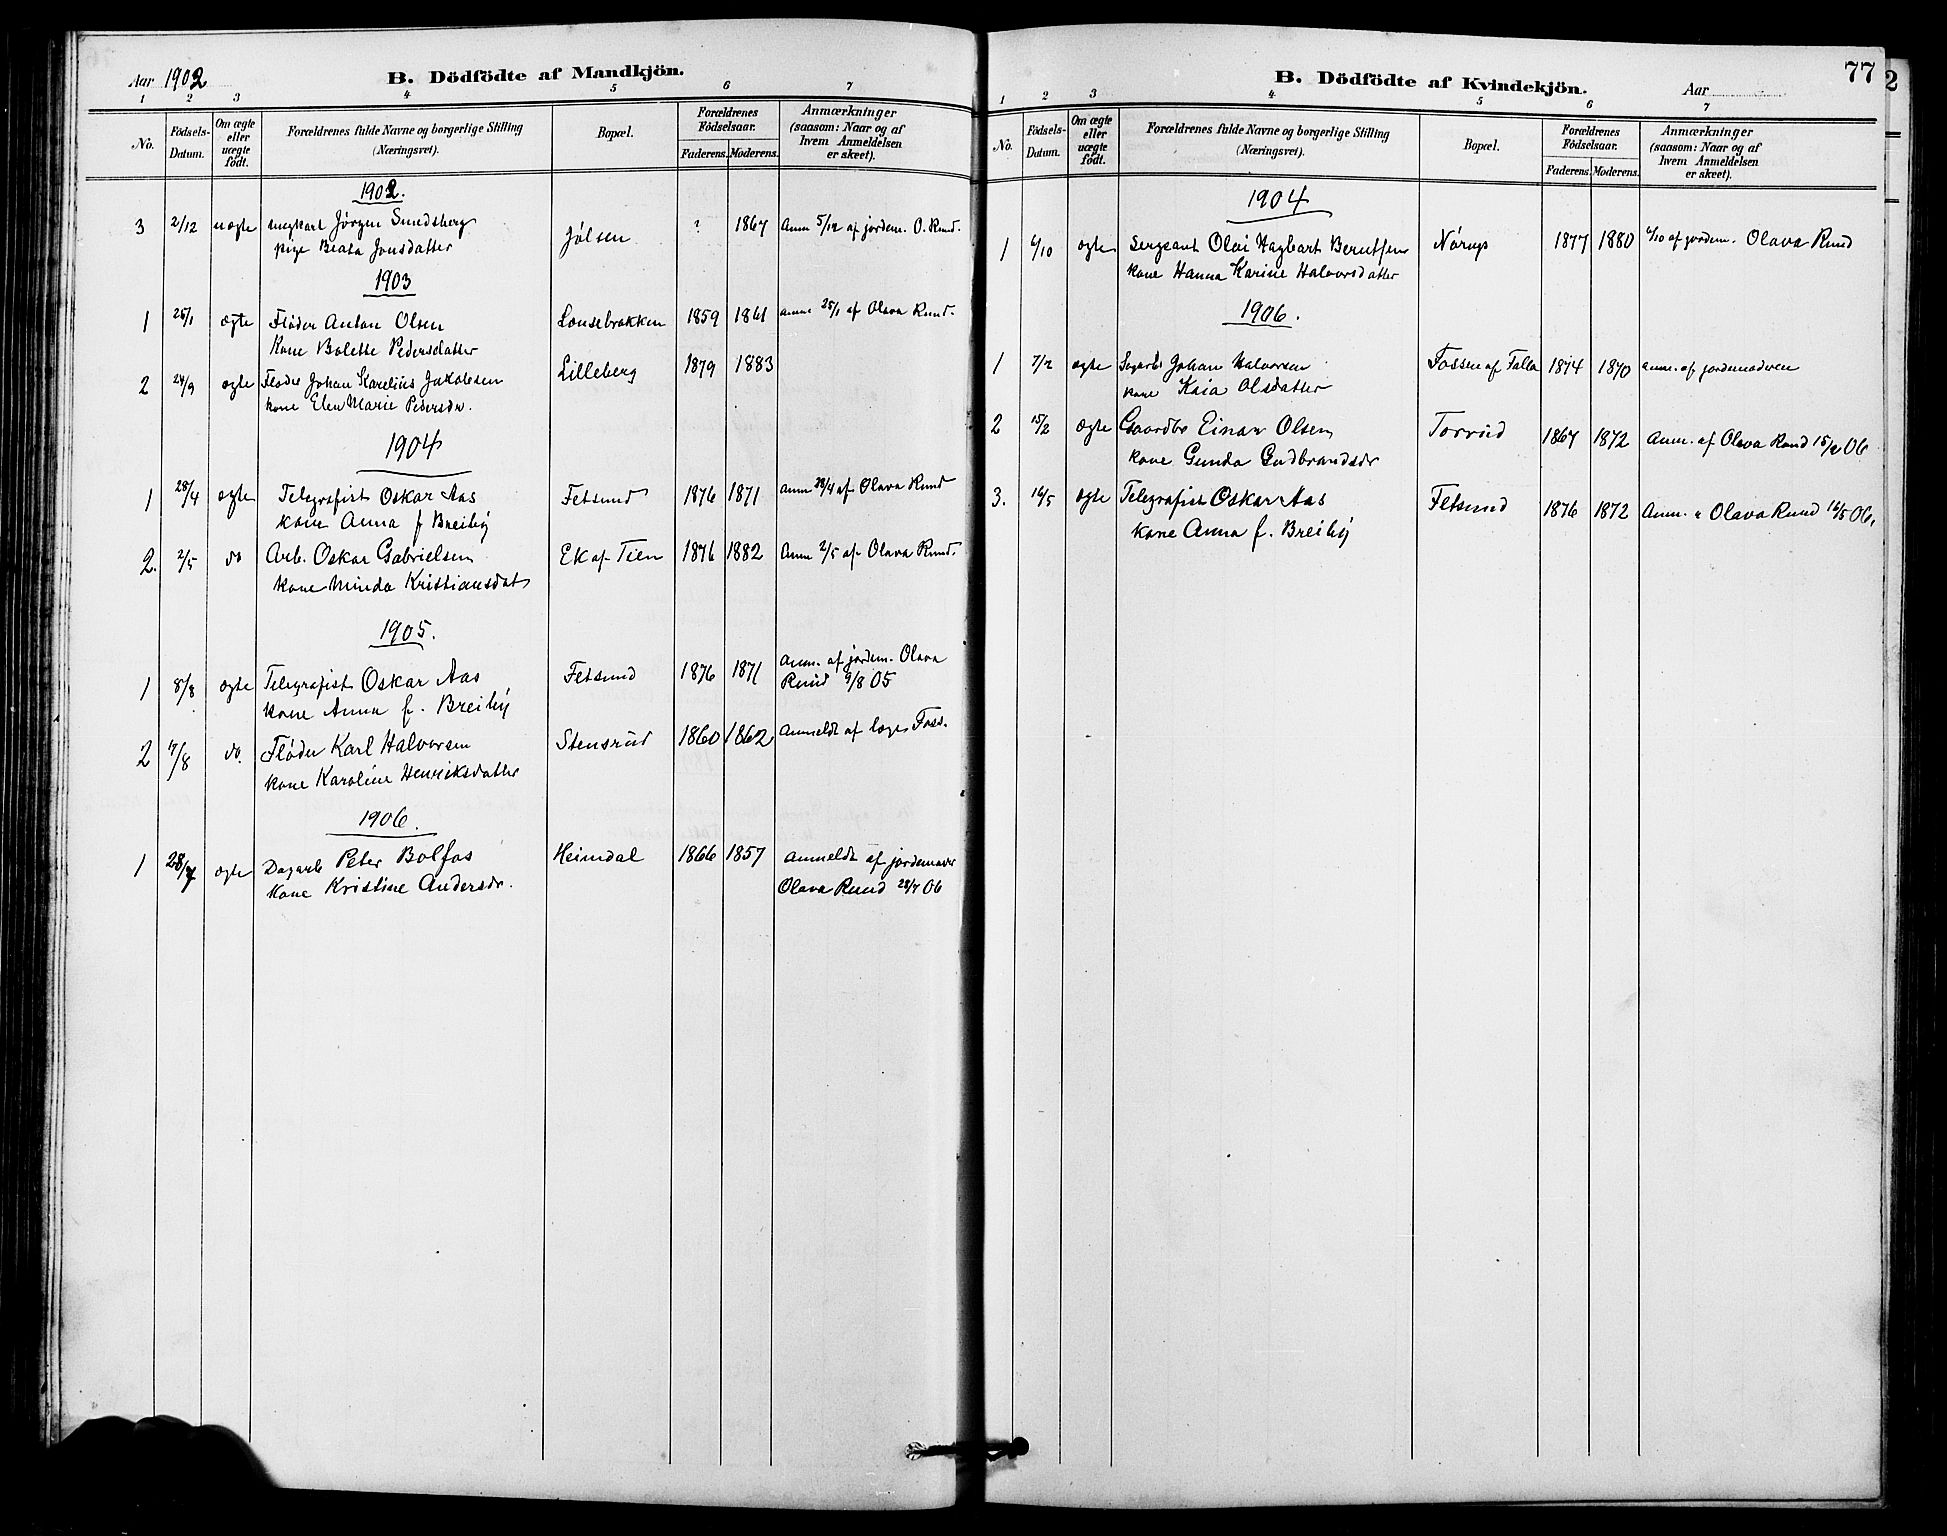 Aar 1902 B. Dödfödte af Mandkjön.
1 2 3 4 5 6 7
No. Födsels-Datum. Om ægte eller uægte födt. Forældrenes fulde Navne og borgerlige Stilling (Næringsvei). Bopæl. Forældrenes Födselsaar. Faderens. Moderens. Anmærkninger (saasom: Naar og af hvem Anmeldelsen er skeet).
1902.
3 2/12 uægte ungkarl Jørgen Smedsberg Jølsen ? 1867 Anm 5/12 af jordem. O. Ruud.
pige Beata Jonsdatter
1903
1 25/1 ægte Fløder Anton Olsen Lonsebrakken 1859 1861 anm 25/1 af Olava Ruud.
kone Bolette Pedersdatter
2 24/9 ægte Fløder Johan Karelius Jakobsen Lilleberg 1879 1883
kone Elen Marie Pedersdr.
1904
1 28/4 ægte Telegrafist Oskar Aas Fetsund 1876 1871 anm 28/4 af Olava Ruud
kone Anna f Breiby
2. 2/5 do Arb. Oskar Gabrielsen Ek af Tien 1876 1882 Anm 2/5 af Olava Ruud.
kone Minda Kristiansdat
1905.
1 8/8 ægte Telegrafist Oskar Aas Fetsund 1876 1871 Anm. af jordem. Olava
kone Anna f. Breiby Ruud 9/8 05
2 17/8 do. Fløder Karl Halvorsen Stensrud 1860 1862 Anmeldt af læge Foss.
kone Karoline Henriksdatter
1906.
1 28/7 ægte Dagarb Peter Bolfos Heimdal 1866 1857 anmeldt af jordemoder
kone Kristine Andersdr. Olava Ruud 28/7 06
77
2
B. Dödfödte af Kvindekjön. Aar
1 2 3 4 5 6 7
No. Födsels-Datum. Om ægte eller uægte födt. Forældrenes fulde Navne og borgerlige Stilling (Næringsvei). Bopæl. Forældrenes Födselsaar. Faderens. Moderens. Anmærkninger (saasom: Naar og af hvem Anmeldelsen er skeet).
1904
1 6/10 ægte Sergeant Olai Hagbart Berntsen Nørup 1877 1880 6/10 af jordem. Olava Ruud
kone Hanna Karine Halvorsdatter
1906.
1 7/2 ægte Sagarb Johan Halvorsen Fossen af Falla 1874 1870 anm. af jordemoderen
kone Kaia Olsdatter
2 15/2 ægte Gaardbr Einar Olsen Torrud 1867 1872 Anm. af Olava Ruud 15/2 06
kone Gunda Gudbrandsdr
3. 16/5 ægte Telegrafist Oskar Aas Fetsund 1876 1872 Anm. a Olava Ruud 16/5 06.
kone Anna f. Breiby